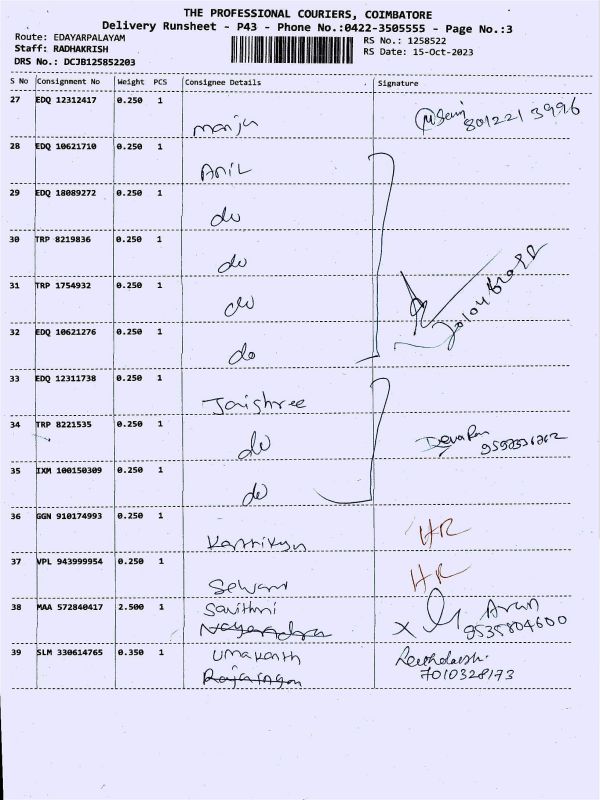 THE PROFESSIONAL COURIERS, COIMBATORE
Delivery Runsheet - P43 - Phone No.:0422-3505555 - Page No.:3
Route: EDAYARPALAYAM RS No.: 1258522
Staff: RADHAKRISH RS Date: 15-Oct-2023
DRS No.: DCJB125852203
S No Consignment No Weight PCS Consignee Details Signature
27 EDQ 12312417 0.250 1
manju 8012213996
28 EDQ 10621710 0.250 1
Anil
29 EDQ 18089272 0.250 1
do
30 TRP 8219836 0.250 1
do
31 TRP 1754932 0.250 1
do
32 EDQ 10621276 0.250 1
do
33 EDQ 12311738 0.250 1
Jaishree
34 TRP 8221535 0.250 1
do
35 IXM 100150309 0.250 1
do
36 GGN 910174993 0.250 1
HR
37 VPL 943999954 0.250 1
HR
38 MAA 572840417 2.500 1
Savithri Arun
Nagendra 9535804600
39 SLM 330614765 0.350 1
Umakanth
7010328173